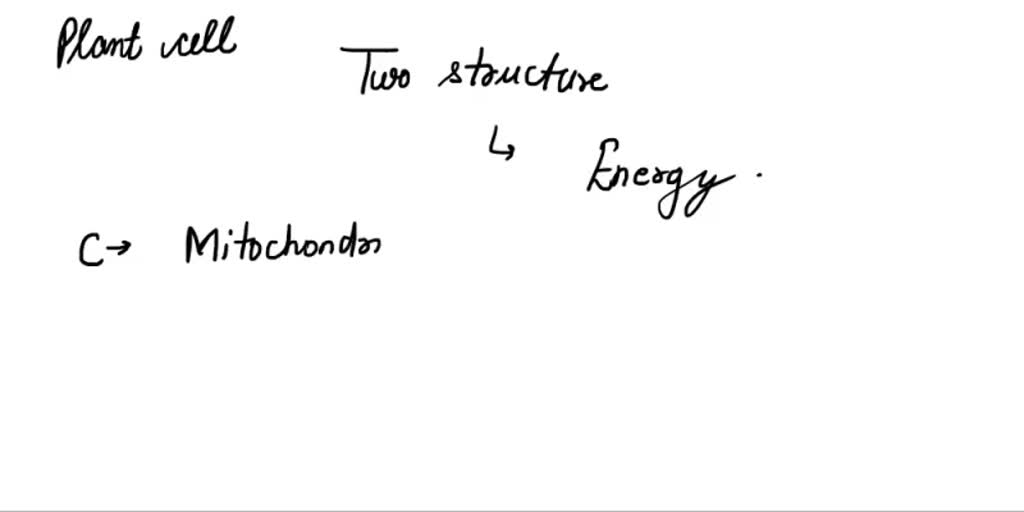 Plant cell
Two structure
↳ Energy.
C→ Mitochondr